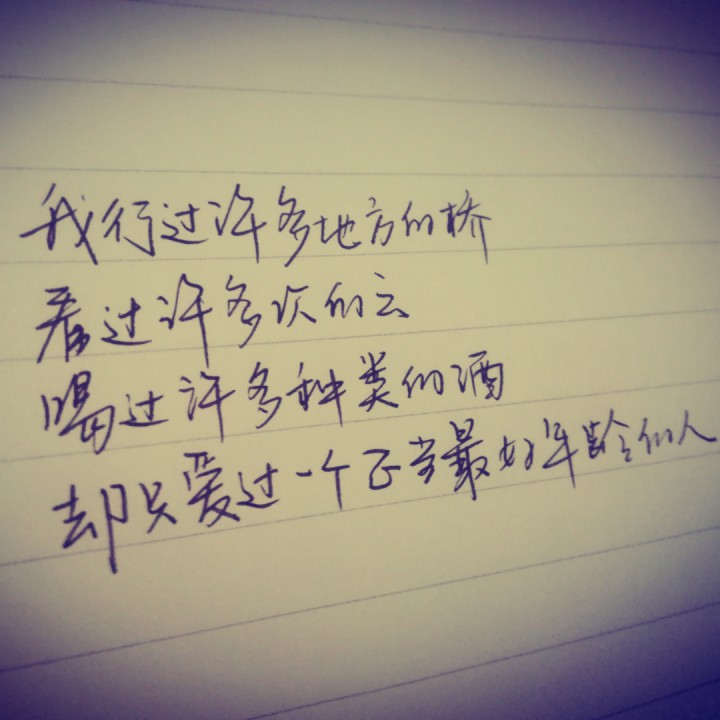 我行过许多地方的桥
看过许多次的云
喝过许多种类的酒
却只爱过一个正当最好年龄的人